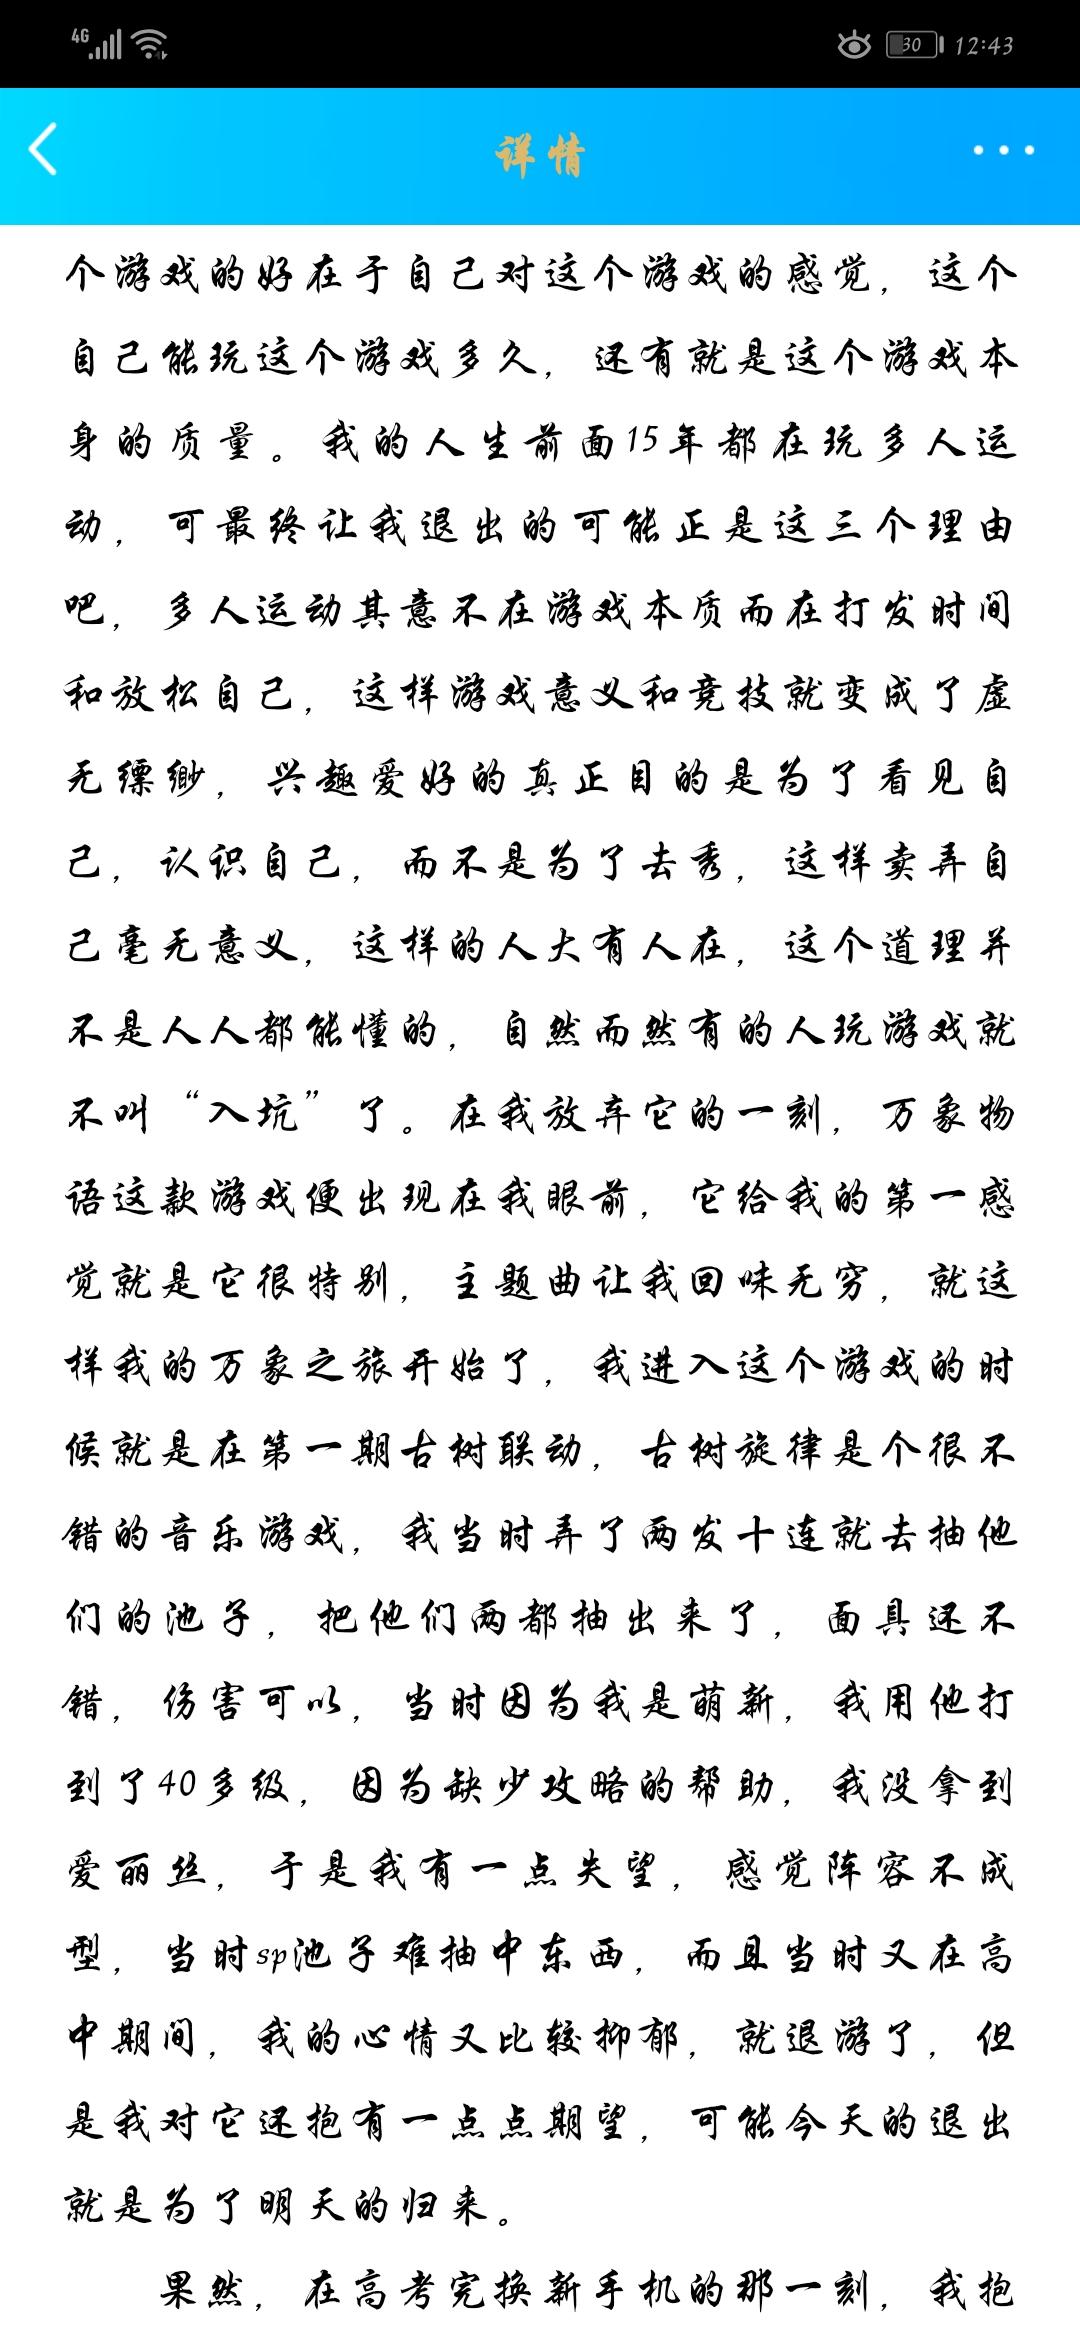 4G 30 12:43
详情
个游戏的好在于自己对这个游戏的感觉，这个
自己能玩这个游戏多久，还有就是这个游戏本
身的质量。我的人生前面15年都在玩多人运
动，可最终让我退出的可能正是这三个理由
吧，多人运动其意不在游戏本质而在打发时间
和放松自己，这样游戏意义和竞技就变成了虚
无缥缈，兴趣爱好的真正目的是为了看见自
己，认识自己，而不是为了去秀，这样卖弄自
己毫无意义，这样的人大有人在，这个道理并
不是人人都能懂的，自然而然有的人玩游戏就
不叫“入坑”了。在我放弃它的一刻，万象物
语这款游戏便出现在我眼前，它给我的第一感
觉就是它很特别，主题曲让我回味无穷，就这
样我的万象之旅开始了，我进入这个游戏的时
候就是在第一期古树联动，古树旋律是个很不
错的音乐游戏，我当时弄了两发十连就去抽他
们的池子，把他们两都抽出来了，面具还不
错，伤害可以，当时因为我是萌新，我用他打
到了40多级，因为缺少攻略的帮助，我没拿到
爱丽丝，于是我有一点失望，感觉阵容不成
型，当时sp池子难抽中东西，而且当时又在高
中期间，我的心情又比较抑郁，就退游了，但
是我对它还抱有一点点期望，可能今天的退出
就是为了明天的归来。
果然，在高考完换新手机的那一刻，我抱